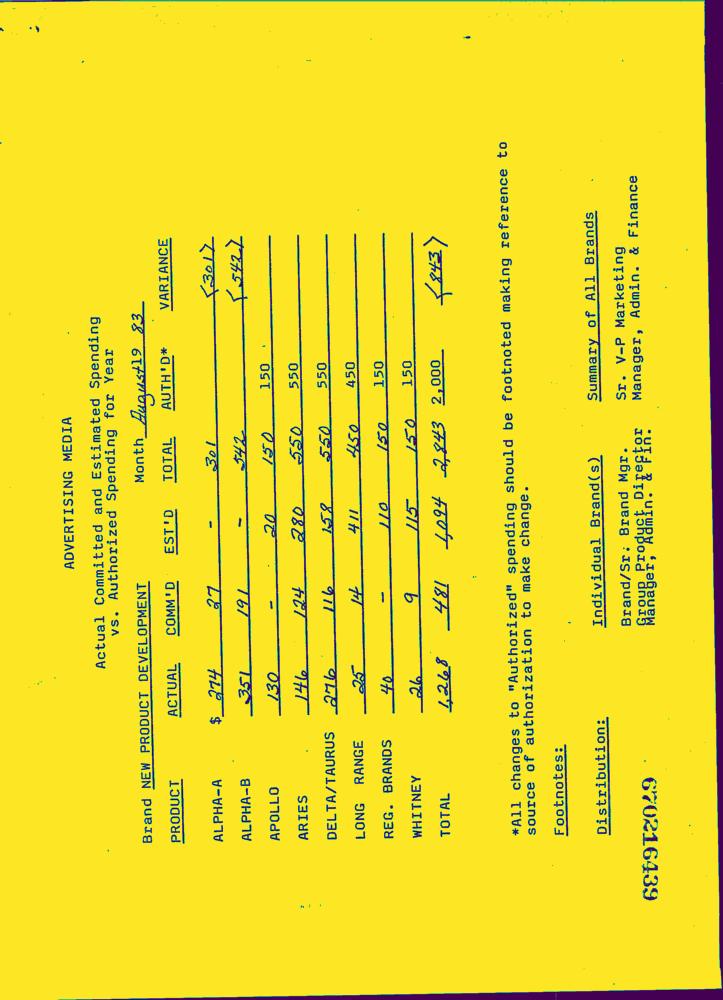 ADVERTISING MEDIA
Actual Committed and Estimated Spending
vs. Authorized Spending for Year
Brand NEW PRODUCT DEVELOPMENT Month August 19 83
PRODUCT ACTUAL COMM'D EST'D TOTAL AUTH'D* VARIANCE
ALPHA-A $ 274 27 - 301 <301>
ALPHA-B 351 191 - 542 <542>
APOLLO 130 - 20 150 150
ARIES 146 124 280 550 550
DELTA/TAURUS 276 116 158 550 550
LONG RANGE 25 14 411 450 450
REG. BRANDS 40 - 110 150 150
WHITNEY 26 9 115 150 150
TOTAL 1,268 481 1,094 2,843 2,000 <843>
*All changes to "Authorized" spending should be footnoted making reference to
source of authorization to make change.
Footnotes:
Distribution: Individual Brand(s) Summary of All Brands
Brand/Sr. Brand Mgr. Sr. V-P Marketing
Group Product Director Manager, Admin. & Finance
Manager, Admin. & Fin.
670216439